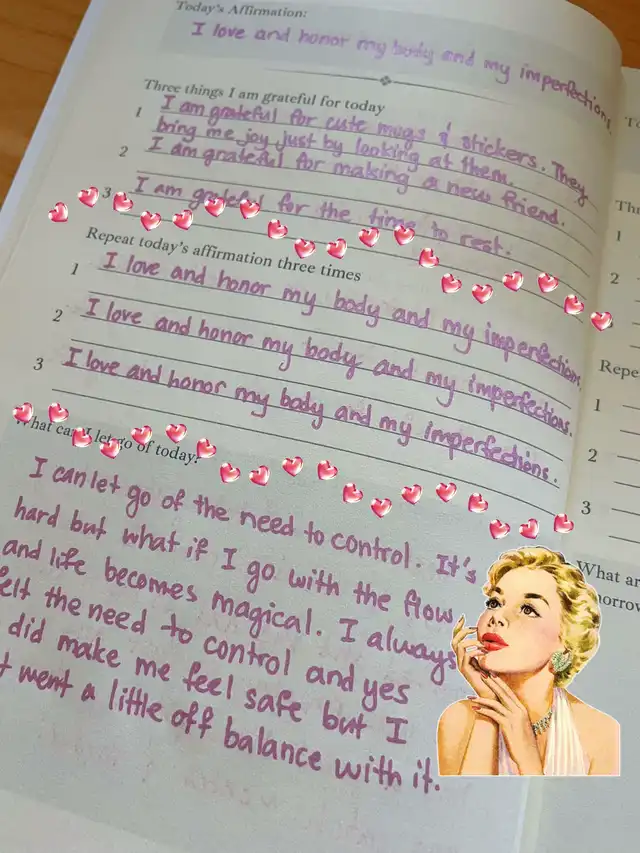 Today's Affirmation:
I love and honor my body and my imperfections
Three things I am grateful for today
1 I am grateful for cute mugs & stickers. They
bring me joy just by looking at them.
2 I am grateful for making a new friend.
3 I am grateful for the time to rest.
Repeat today's affirmation three times
1 I love and honor my body and my imperfections
2 I love and honor my body and my imperfections.
3 I love and honor my body and my imperfections.
What can I let go of today?
I can let go of the need to control. It's
hard but what if I go with the flow
and life becomes magical. I always
felt the need to control and yes
did make me feel safe but I
went a little off balance with it.
1
2
Repe
1
2
3
What ar